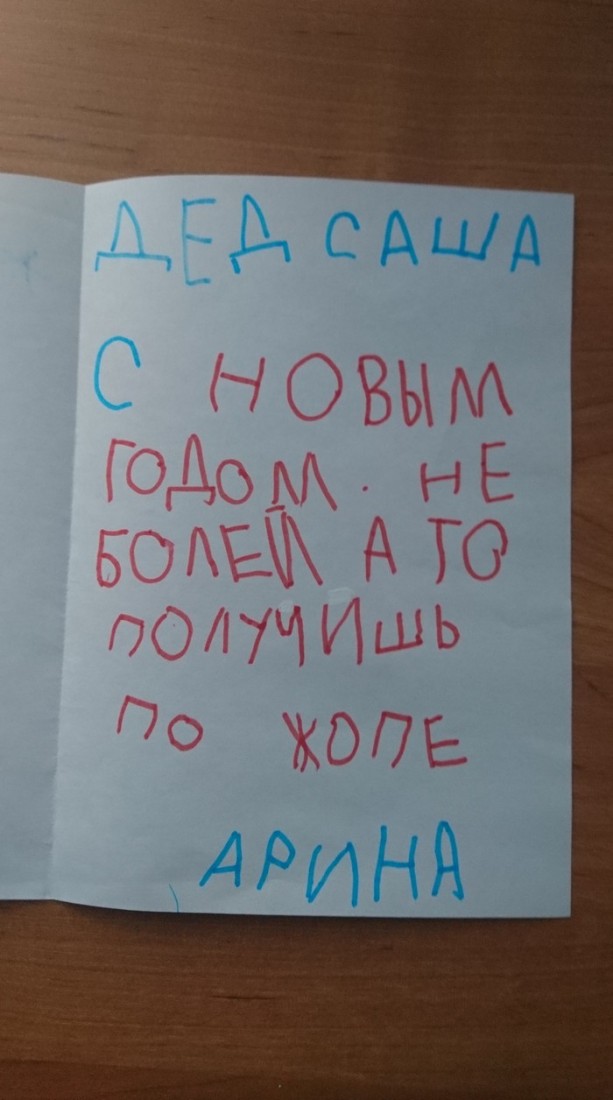 ДЕД САША
С НОВЫМ
ГОДОМ. НЕ
БОЛЕЙ А ТО
ПОЛУЧИШЬ
ПО ЖОПЕ
АРИНА